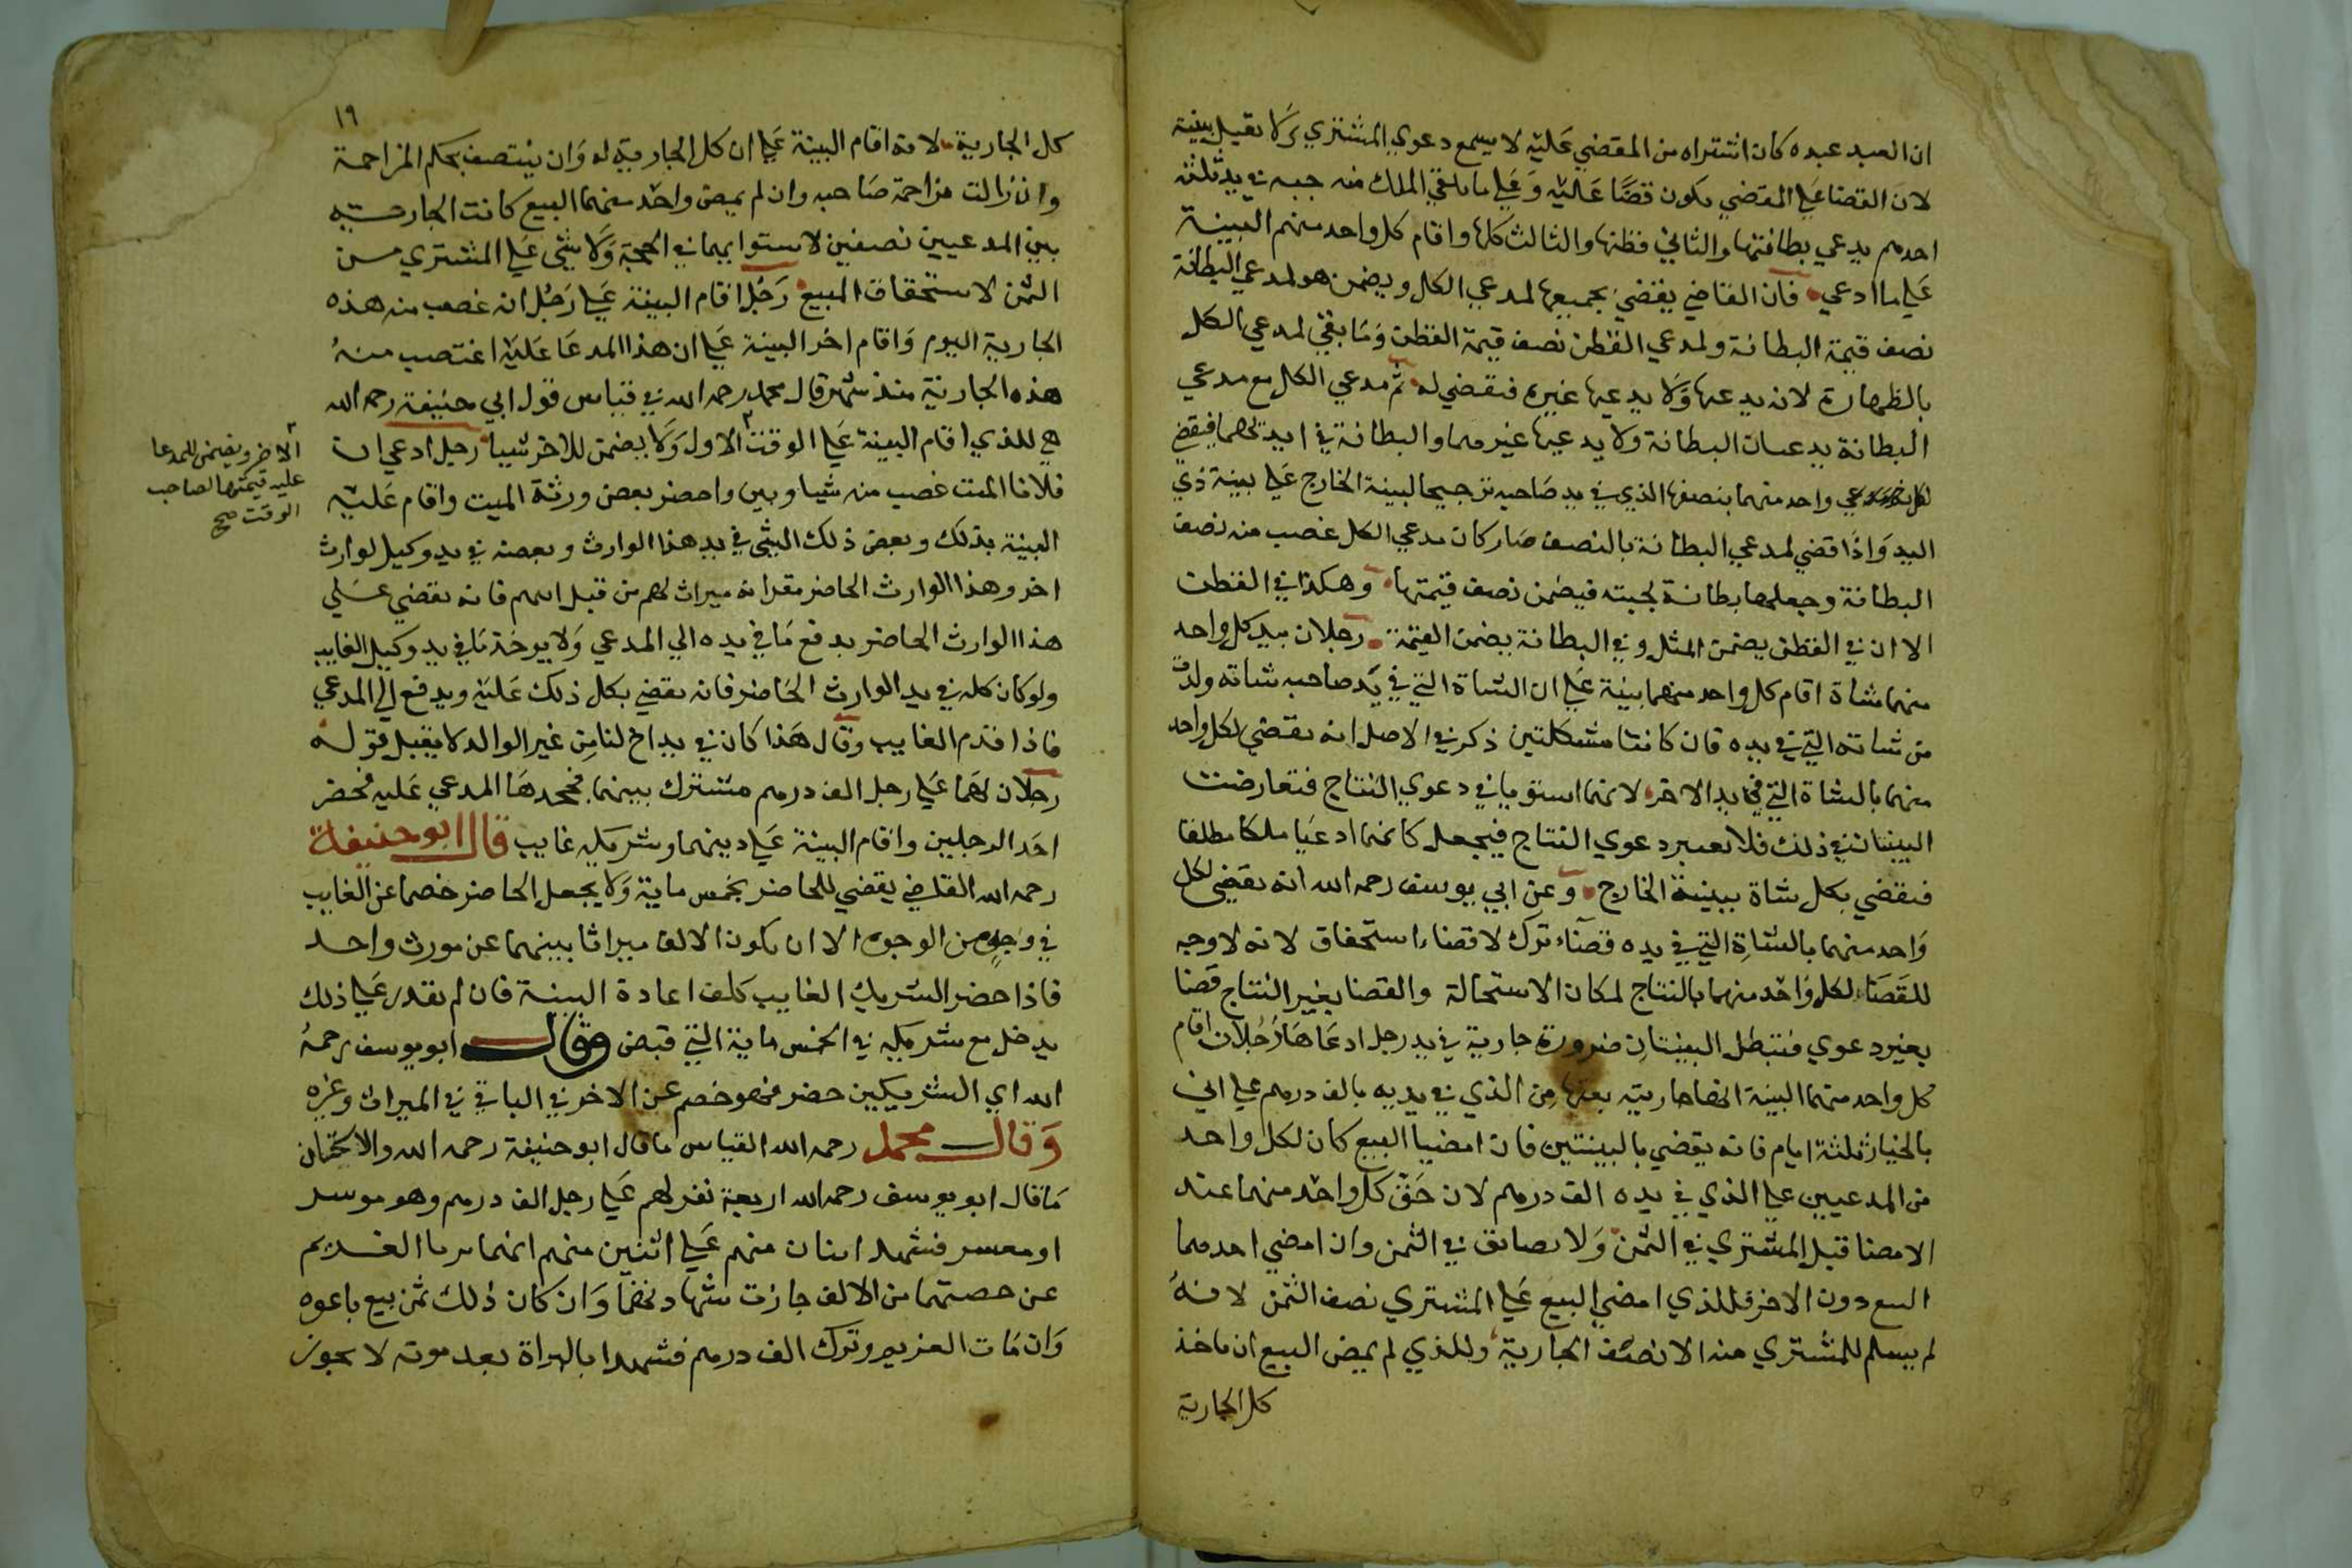 ان العبد عبده كان اشتراه من المقضي عليه لا يسمع دعوي المشتري ولا تقبل بينته
لان القضا علي المقضي يكون قضا عليه وعلي ما يلقي الملك منه جبه في يد ثلثه
احدهم يدعي بطانتها والثاني قطنها والثالث كلها واقام كل واحد منهم البينة
علي ما ادعي فان القاضي يقضي بجميعها لمدعي الكل ويضمن هو لمدعي البطانة
نصف قيمة البطانة ولمدعي القطن نصف قيمة القطن وما بقي لمدعي الكل
بالظهارة لانه يدعيها ولا يدعيها غيره فيقضي له ثم مدعي الكل مع مدعي
البطانة يدعيان البطانة ولا يدعيها غيرهما والبطانة في ايديهما فيقضي
لكل واحد منهما بنصفها الذي في يد صاحبه ترجيحا لبينة الخارج علي بينة ذي
اليد واذا قضي لمدعي البطانة بالنصف صار كان مدعي الكل غصب منه نصف
البطانة وجعلها بطانة لجبته فيضمن نصف قيمتها وهكذا في القطن
الا ان في القطن يضمن المثل وفي البطانة يضمن القيمة رجلان بيد كل واحد
منهما شاة اقام كل واحد منهما بينة علي ان الشاة التي في يد صاحبه شاته ولدت
من شاته التي في يده فان كانتا مشكلتين ذكر في الاصل انه يقضي لكل واحد
منهما بالشاة التي في يد الاخر لانهما استويا في دعوي النتاج فتعارضت
البينتان في ذلك فلا يعتبر دعوي النتاج فيجعل كانهما ادعيا ملكا مطلقا
فيقضي بكل شاة ببينة الخارج وعن ابي يوسف رحمه الله انه يقضي لكل
واحد منهما بالشاة التي في يده قضاء ترك لا قضاء استحقاق لانه لا وجه
للقضاء لكل واحد منهما بالنتاج لمكان الاستحالة والقضا بغير النتاج قضا
بغير دعوي فتبطل البينتان ضرورة جارية في يد رجل ادعاها رجلان اقام
كل واحد منهما البينة انها جاريته بعتها من الذي في يديه بالف درهم علي اني
بالخيار ثلثة ايام فانه يقضي بالبينتين فان امضيا البيع كان لكل واحد
من المدعيين علي الذي في يده الف درهم لان حق كل واحد منهما عند
الامضا قبل المشتري في الثمن ولا تضايق في الثمن وان امضي احدهما
البيع دون الاخر فللذي امضي البيع علي المشتري نصف الثمن لانه
لم يسلم للمشتري منه الا نصف الجارية وللذي لم يمض البيع ان ياخذ
كل الجارية
١٩
كل الجارية لانه اقام البينة علي ان كل الجارية له وان ينتصف بحكم المزاحمة
وان زالت مزاحمة صاحبه وان لم يمض واحد منهما البيع كانت الجارية
بين المدعيين نصفين لاستوايهما في الحجة ولا شي علي المشتري من
الثمن لاستحقاق المبيع رجل اقام البينة علي رجل انه غصب منه هذه
الجارية اليوم واقام اخر البينة علي ان هذا المدعا عليه اغتصب منه
هذه الجارية منذ شهر قال محمد رحمه الله في قياس قول ابي حنيفة رحمه الله
هي للذي اقام البينة علي الوقت الاول ولا يضمن للاخر شيا رجل ادعي ان
الاخر ويضمن المدعا
عليه قيمتها لصاحب
الوقت صح
فلانا الميت غصب منه شيا وبين واحضر بعض ورثة الميت واقام عليه
البينة بذلك وبعض ذلك الشي في يد هذا الوارث وبعضه في يد وكيل لوارث
اخر وهذا الوارث الحاضر مقر انه ميراث لهم من قبل ابيهم فانه يقضي علي
هذا الوارث الحاضر بدفع ما في يده الي المدعي ولا يوخذ ما في يد وكيل الغايب
ولو كان كله في يد الوارث الحاضر فانه يقضي بكل ذلك عليه ويدفع الي المدعي
فاذا قدم الغايب وقال هذا كان في يد اخ لنا من غير الوالد لا يقبل قوله
رجلان لهما علي رجل الف درهم مشترك بينهما فجحدها المدعي عليه فحضر
احد الرجلين واقام البينة علي دينهما وشريكه غايب قال ابو حنيفة
رحمه الله القاضي يقضي للحاضر بخمس ماية ولا يجعل الحاضر خصما عن الغايب
في وجه من الوجوه الا ان يكون الالف ميراثا بينهما عن مورث واحد
فاذا حضر الشريك الغايب كلف اعادة البينة فان لم يقدر علي ذلك
يدخل مع شريكه في الخمس ماية التي قبض وقال ابو يوسف رحمه
الله اي الشريكين حضر فهو خصم عن الاخر في الباقي في الميراث وغيره
وقال محمد رحمه الله القياس ما قال ابو حنيفة رحمه الله والاستحسان
ما قال ابو يوسف رحمه الله اربعة نفر لهم علي رجل الف درهم وهو موسر
او معسر فشهد اثنان منهم علي اثنين منهم انهما ابريا الغريم
عن حصتهما من الالف جازت شهادتهما وان كان ذلك ثمن بيع باعوه
وان مات الغريم وترك الف درهم فشهدا بالبراة بعد موته لا يجوز